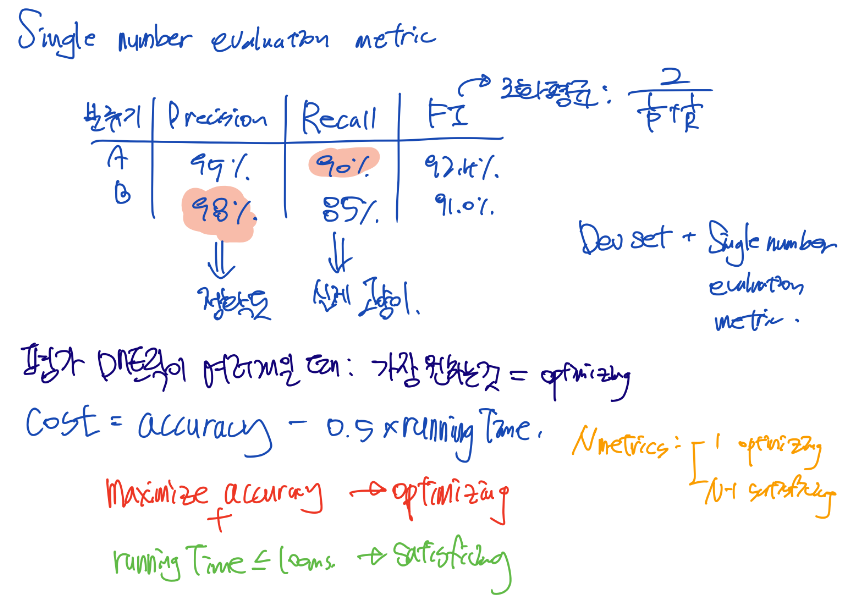 Single number evaluation metric
분류기 Precision Recall F1 → 조화평균: 2 / (1/P + 1/R)
A 95% 90% 92.4%
B 98% 85% 91.0%
정확도 실제 고양이.
Dev set + Single number
evaluation
metric.
평가 매트릭이 여러개일 때: 가장 원하는것 = optimizing
Cost = accuracy - 0.5 x running Time.
N metrics: 1 optimizing
N-1 satisficing
Maximize accuracy → optimizing
+
running Time ≤ 100ms. → satisficing